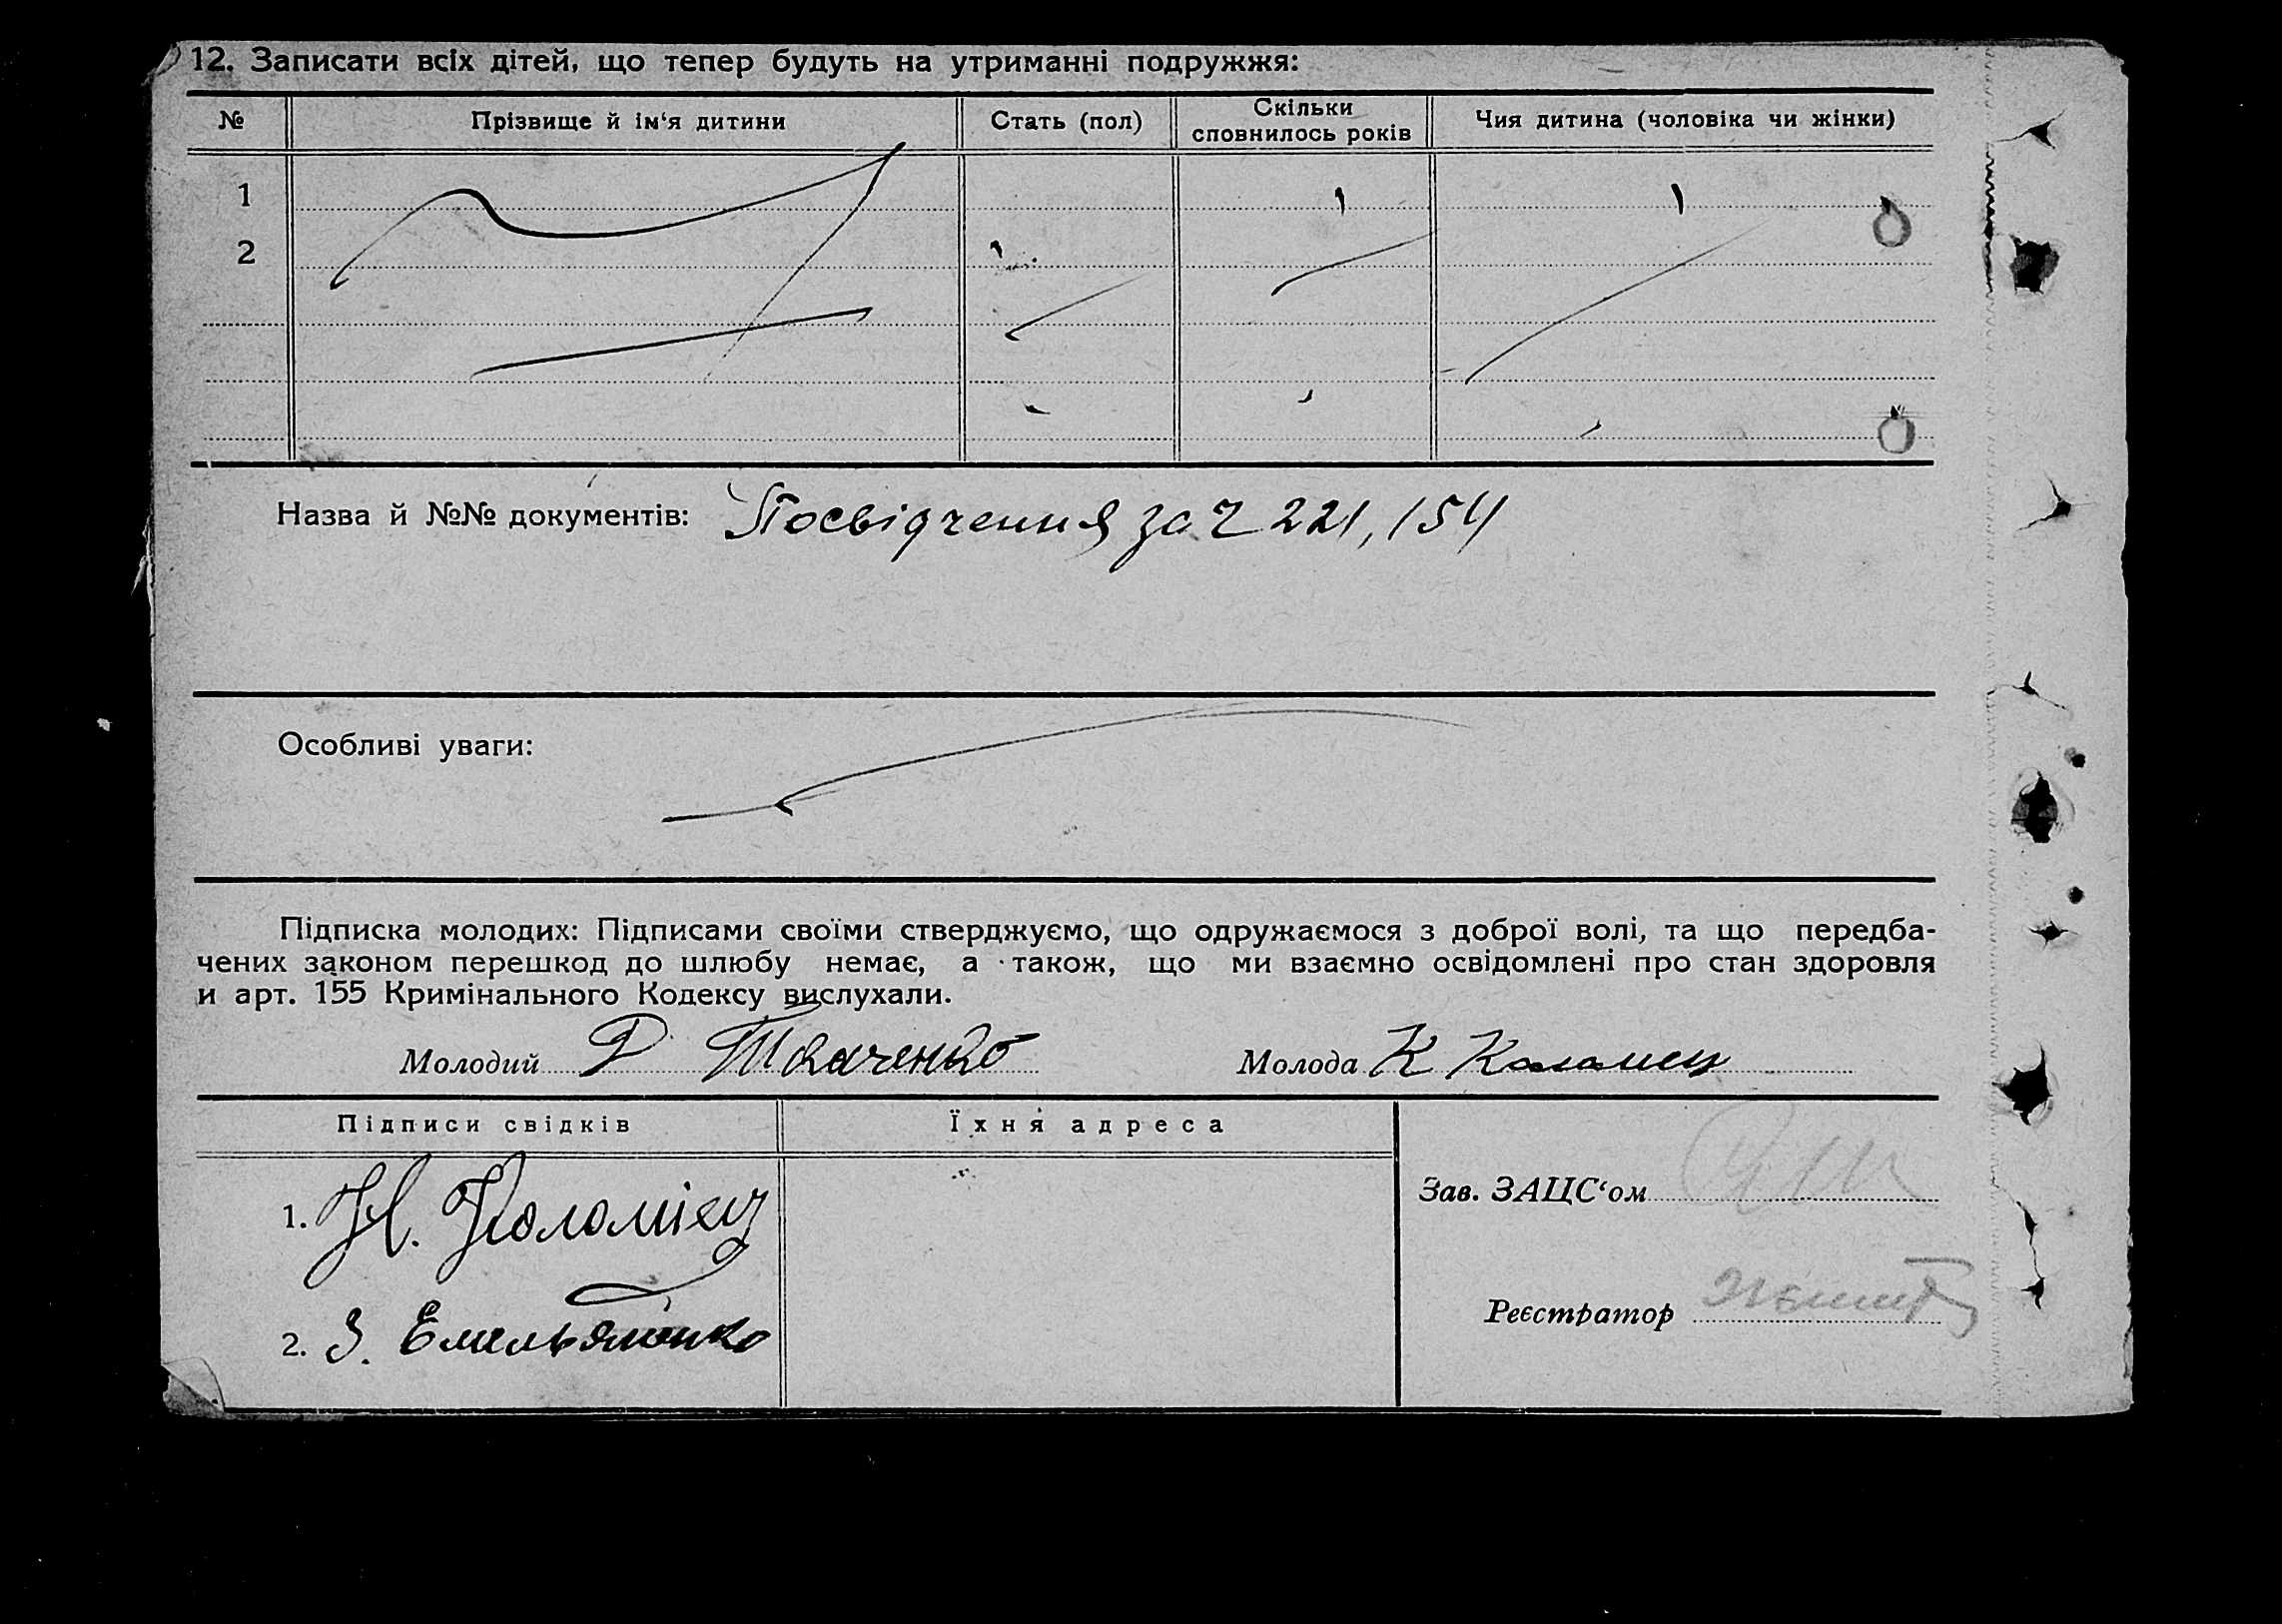 12. Записати всіх дітей, що тепер будуть на утриманні подружжя:
№ Прізвище й ім‘я дитини Стать (пол) Скільки сповнилось років Чия дитина (чоловіка чи жінки)
1
2
Назва й №№ документів: Посвідчення за Ч 221, 154
Особливі уваги:
Підписка молодих: Підписами своїми стверджуємо, що одружаємося з доброї волі, та що передба-
чених законом перешкод до шлюбу немає, а також, що ми взаємно освідомлені про стан здоровля
и арт. 155 Кримінального Кодексу вислухали.
Молодий Д Ткаченко Молода К Коломиец
Підписи свідків Їхня адреса
Зав. ЗАЦС‘ом
1. Н. Коломієц
Реєстратор
2. З. Емельяненко